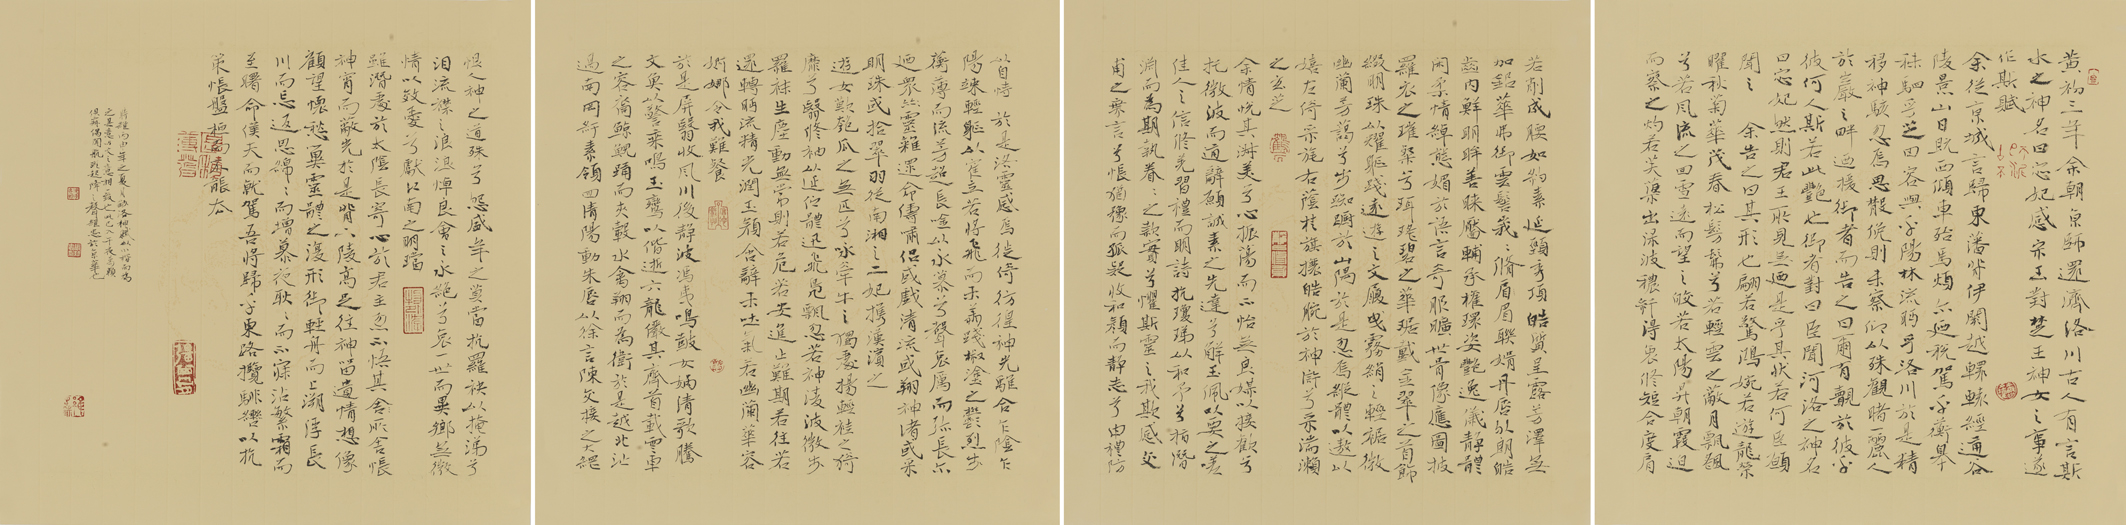 黃初三年余朝京師還濟洛川古人有言斯
水之神名曰宓妃感宋玉對楚王神女之事遂
作斯賦
余從京城言歸東藩背伊闕越轘轅經通谷
陵景山日既西傾車殆馬煩爾迺稅駕乎蘅皋
秣駟乎芝田容與乎陽林流眄乎洛川於是精
移神駭忽焉思散俯則未察仰以殊觀睹麗人
於巖之畔迺援御者而告之曰爾有覿於彼乎
彼何人斯若此艷也御者對曰臣聞河洛之神名
曰宓妃然則君王所見無迺是乎其狀若何臣願
聞之 余告之曰其形也翩若驚鴻婉若遊龍榮
曜秋菊華茂春松髣髴兮若輕雲之蔽月飄颻
兮若風流之回雪遠而望之皎若太陽升朝霞迫
而察之灼若芙蕖出淥波穠纖得衷修短合度肩
若削成腰如約素延頸秀項皓質呈露芳澤無
加鉛華弗御雲髻峨〻修眉聯娟丹唇外朗皓
齒內鮮明眸善睞靨輔承權瓌姿艷逸儀靜體
閑柔情綽態媚於語言奇服曠世骨像應圖披
羅衣之璀粲兮珥瑤碧之華琚戴金翠之首飾
綴明珠以耀軀踐遠遊之文履曳霧綃之輕裾微
幽蘭芳藹兮步踟躕於山隅於是忽焉縱體以遨以
嬉左倚采旄右蔭桂旗攘皓腕於神滸兮采湍瀨
之玄芝
余情悅其淑美兮心振蕩而不怡無良媒以接歡兮
託微波而通辭願誠素之先達兮解玉佩以要之嗟
佳人之信修羌習禮而明詩抗瓊珶以和予兮指潛
淵而為期執眷〻之款實兮懼斯靈之我欺感交
甫之棄言兮悵猶豫而狐疑收和顏而靜志兮申禮防
以自持 於是洛靈感焉徙倚彷徨神光離合乍陰乍
陽竦輕軀以鶴立若將飛而未翔踐椒塗之郁烈步
蘅薄而流芳超長吟以永慕兮聲哀厲而彌長爾
迺眾靈雜遝命儔嘯侶或戲清流或翔神渚或采
明珠或拾翠羽從南湘之二妃攜漢濱之
遊女歎匏瓜之無匹兮詠牽牛之獨處揚輕袿之猗
靡兮翳修袖以延佇體迅飛鳧飄忽若神淩波微步
羅襪生塵動無常則若危若安進止難期若往若
還轉眄流精光潤玉顏含辭未吐氣若幽蘭華容
婀娜令我忘餐
於是屏翳收風川後靜波馮夷鳴鼓女媧清歌騰
文魚以警乘鳴玉鸞以偕逝六龍儼其齊首載雲車
之容裔鯨鯢踊而夾轂水禽翔而為衛於是越北沚
過南岡紆素領回清陽動朱唇以徐言陳交接之大綱
恨人神之道殊兮怨盛年之莫當抗羅袂以掩涕兮
淚流襟之浪浪悼良會之永絕兮哀一逝而異鄉無微
情以效愛兮獻江南之明璫
雖潛處於太陰長寄心於君王忽不悟其所舍悵
神宵而蔽光於是背下陵高足往神留遺情想像
顧望懷愁冀靈體之復形御輕舟而上溯浮長
川而忘返思綿〻而增慕夜耿〻而不寐沾繁霜而
至曙命僕夫而就駕吾將歸乎東路攬騑轡以抗
策悵盤桓而不能去